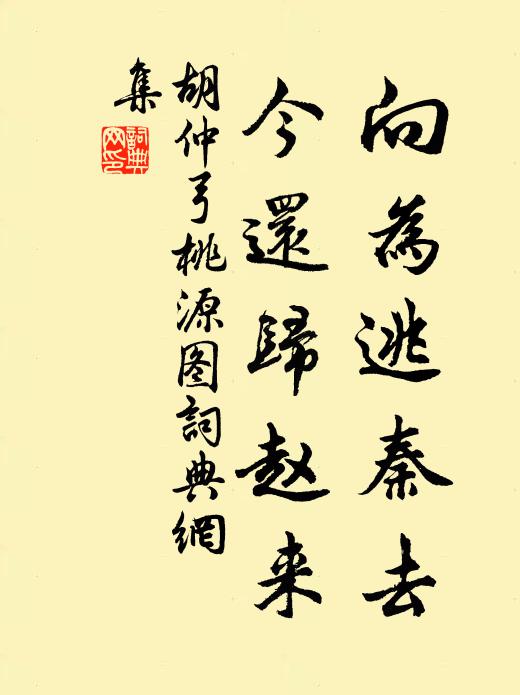 向為逃秦去
今還歸赵来
胡仲弓桃源图詞典網
集
詞典
网印